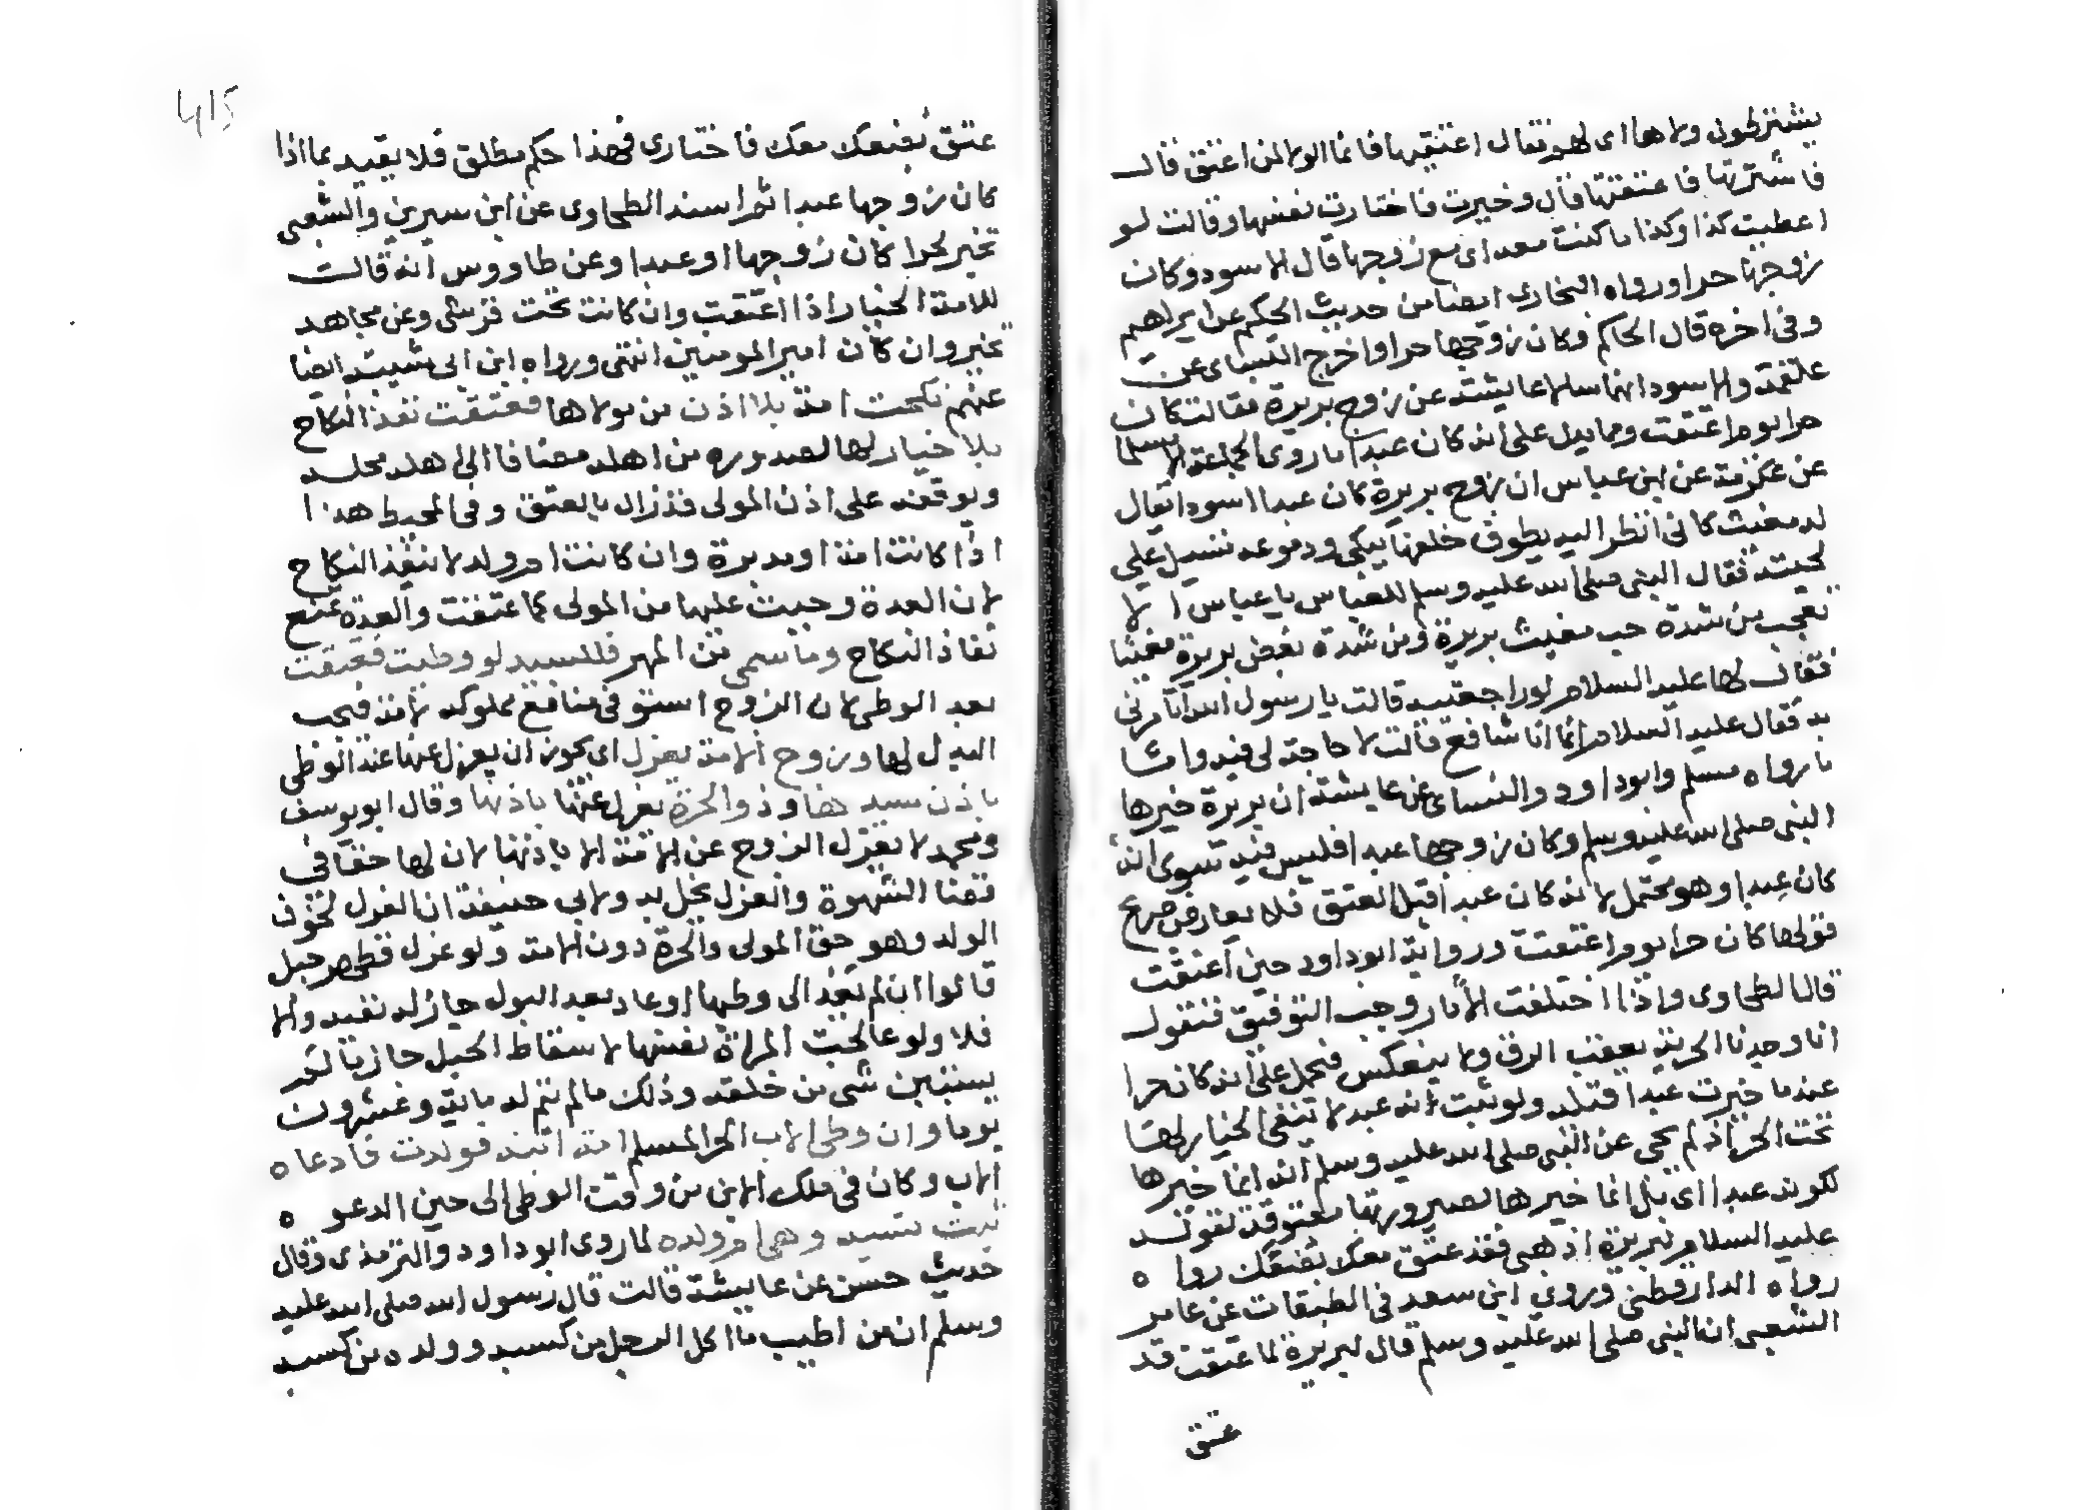 يشترطون ولاها اى لهم فقال اعتقيها فانما الولا لمن اعتق قالت
فاشترتها فاعتقتها قال وخيرت فاختارت نفسها وقالت لو
اعطيت كذا وكذا ما كنت معه اى مع زوجها قال الاسود وكان
زوجها حرا ورواه البخارى ايضا من حديث الحكم عن ابراهيم
وفى اخره قال الحاكم وكان زوجها حرا واخرج النسائ عن
علقمة والاسود انهما سالا عايشة عن زوج بريرة فقالت كان
حرا يوم اعتقت ومما يدل على انه كان عبدا ما روى الجماعة الا مسلما
عن عكرمة عن ابن عباس ان زوج بريرة كان عبدا اسودا يقال
له مغيث كانى انظر اليه يطوف خلفها يبكى ودموعه تسيل على
لحيته فقال النبى صلى الله عليه وسلم للعباس يا عباس الا
تعجب من شدة حب مغيث بريرة ومن شدة بغض بريرة مغيثا
فقال لها عليه السلام لو راجعتيه قالت يا رسول الله اتامرنى
به فقال عليه السلام انما انا شافع قالت لا حاجة لى فيه واما
ما رواه مسلم وابو داود والنسائ عن عايشة ان بريرة خيرها
النبى صلى الله عليه وسلم وكان زوجها عبدا فليس فيه سوى انه
كان عبدا وهو محتمل لانه كان عبدا قبل العتق فلا يعارض صريح
قولها كان حرا يوم اعتقت ورواية ابو داود حين اعتقت
قال الطحاوى واذا اختلفت الاثار وجب التوفيق فنقول
انا وجدنا الحرية يعقب الرق ولا ينعكس فيحمل على انه كان حرا
عند ما خيرت عبدا قبله ولو ثبت انه عبد لا تنفى الخيار لها
تحت الحر اذ لم يجى عن النبى صلى الله عليه وسلم انه انما خيرها
لكونه عبدا اى بل انما خيرها لصيرورتها معتوقة لقوله
عليه السلام لبريرة اذهبى فقد عتق معك بضعك رواه
رواه الدارقطنى وروى ابن سعد فى الطبقات عن عامر
الشعبى ان النبى صلى الله عليه وسلم قال لبريرة لما عتقت قد
عتق
415
عتق بضعك معك فاختارى فهذا حكم مطلق فلا يقيد بما اذا
كان زوجها عبدا ثم اسند الطحاوى عن ابن سيرين والشعبى
تخير حرا كان زوجها او عبدا وعن طاووس انه قالت
للامة الخيار اذا اعتقت وان كانت تحت قرشى وعن مجاهد
تخير وان كان امير المومنين انتهى ورواه ابن ابى شيبة ايضا
عنهم نكحت امة بلا اذن من مولاها فعتقت نفذ النكاح
بلا خيار لها لصدوره من اهله مضافا الى اهله محله
وتوقفه على اذن المولى قد زال بالعتق وفى المحيط هذا
اذا كانت امة او مدبرة وان كانت ام ولد لا ينفذ النكاح
لان العدة وجبت عليها من المولى كما عتقت والعدة تمنع
نفاذ النكاح وما سمى من المهر فللسيد لو وطيت فعتقت
بعد الوطى لان الزوج استوفى منافع مملوكه لامة فيجب
البدل لها وزوج الامة يعزل اى يجوز ان يعزل عنها عند الوطى
باذن سيدها وذو الحرة يعزل عنها باذنها وقال ابو يوسف
ومحمد لا يعزل الزوج عن الامة الا باذنها لان لها حقا فى
قضا الشهوة والعزل يخل به ولابى حنيفة ان العزل لخوف
الولد وهو حق المولى والحرة دون الامة ولو عزل فظهر حبل
قالوا ان لم يعد الى وطيها او عاد بعد البول جاز له نفيه والا
فلا ولو عالجت المراة نفسها لاسقاط الحبل جاز ما لم
يستبين شى من خلقه وذلك ما لم يتم له ماية وعشرون
يوما وان وطى الاب الحر المسلم امة ابنه فولدت فادعاه
الاب وكان فى ملك الابن من وقت الوطى الى حين الدعوه
ثبت نسبه وهى ام ولده لما روى ابو داود والترمذى وقال
حديث حسن عن عايشة قالت قال رسول الله صلى الله عليه
وسلم ان من اطيب ما اكل الرجل من كسبه وولده من كسبه